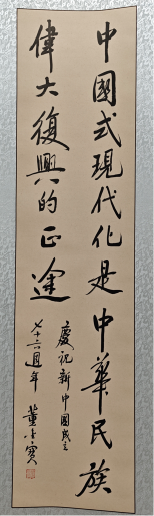 中國式現代化是中華民族
偉大復興的正途
慶祝新中國成立
七十六週年
董金寶